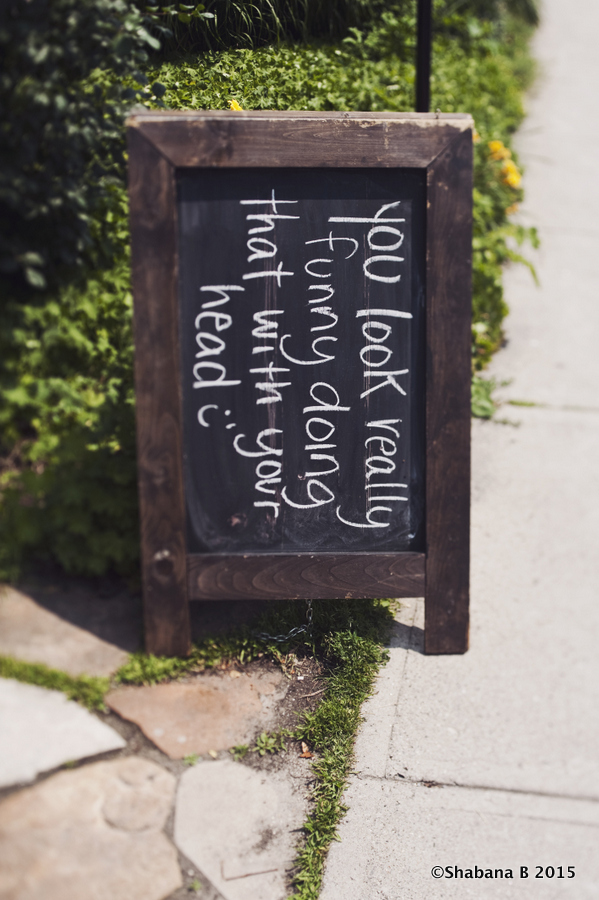 you look really
funny doing
that with your
head :)
©Shabana B 2015